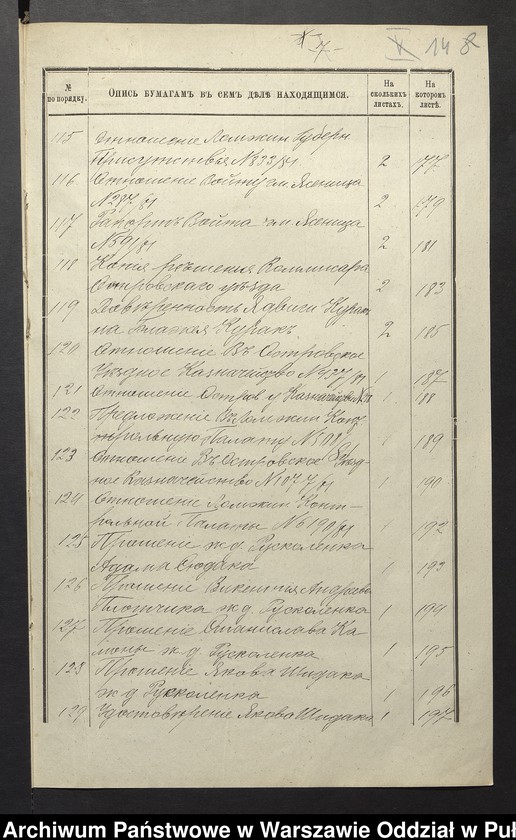 V 14 8
№ по порядку.
Опись бумагамъ въ семъ дѣлѣ находящимся.
На сколькихъ листахъ.
На которомъ листѣ.
115 Отношеніе Ломжин Губерн
Присутствія № 833/81 2 177
116 Отношеніе Войту гм. Ясеница
№ 287/81 2 179
117 Рапортъ Войта гм Ясеница
№ 59/81 2 181
118 Копія рѣшенія Коммисара
Островскаго уѣзда 2 183
119 Довѣренность Ядвиги Куракъ
на Блажея Куракъ 2 185
120 Отношеніе Въ Островское
Уѣздное Казначейство № 477/81 1 187
121 Отношеніе Остров. у Казначейства 1 188
122 Предложеніе Въ Ломжин Конт
трольную Палату 1 189
123 Отношеніе Въ Островское Уѣзд-
ное Казначейство № 1077/81 1 190
124 Отношеніе Ломжин Конт-
рольной Палаты № 6190/81 1 192
125 Прошеніе ж.д. Русколенка
Адама 1 193
126 Прошеніе Викентія Андреева
Плотчика ж.д. Русколенка 1 194
127 Прошеніе Станислава Ка-
ж д. Русколенка 1 195
128 Прошеніе Якова Шидака
ж д. Русколенка 1 196
129 Удостовѣреніе Якова Шидака 1 197
Archiwum Państwowe w Warszawie Oddział w Puł